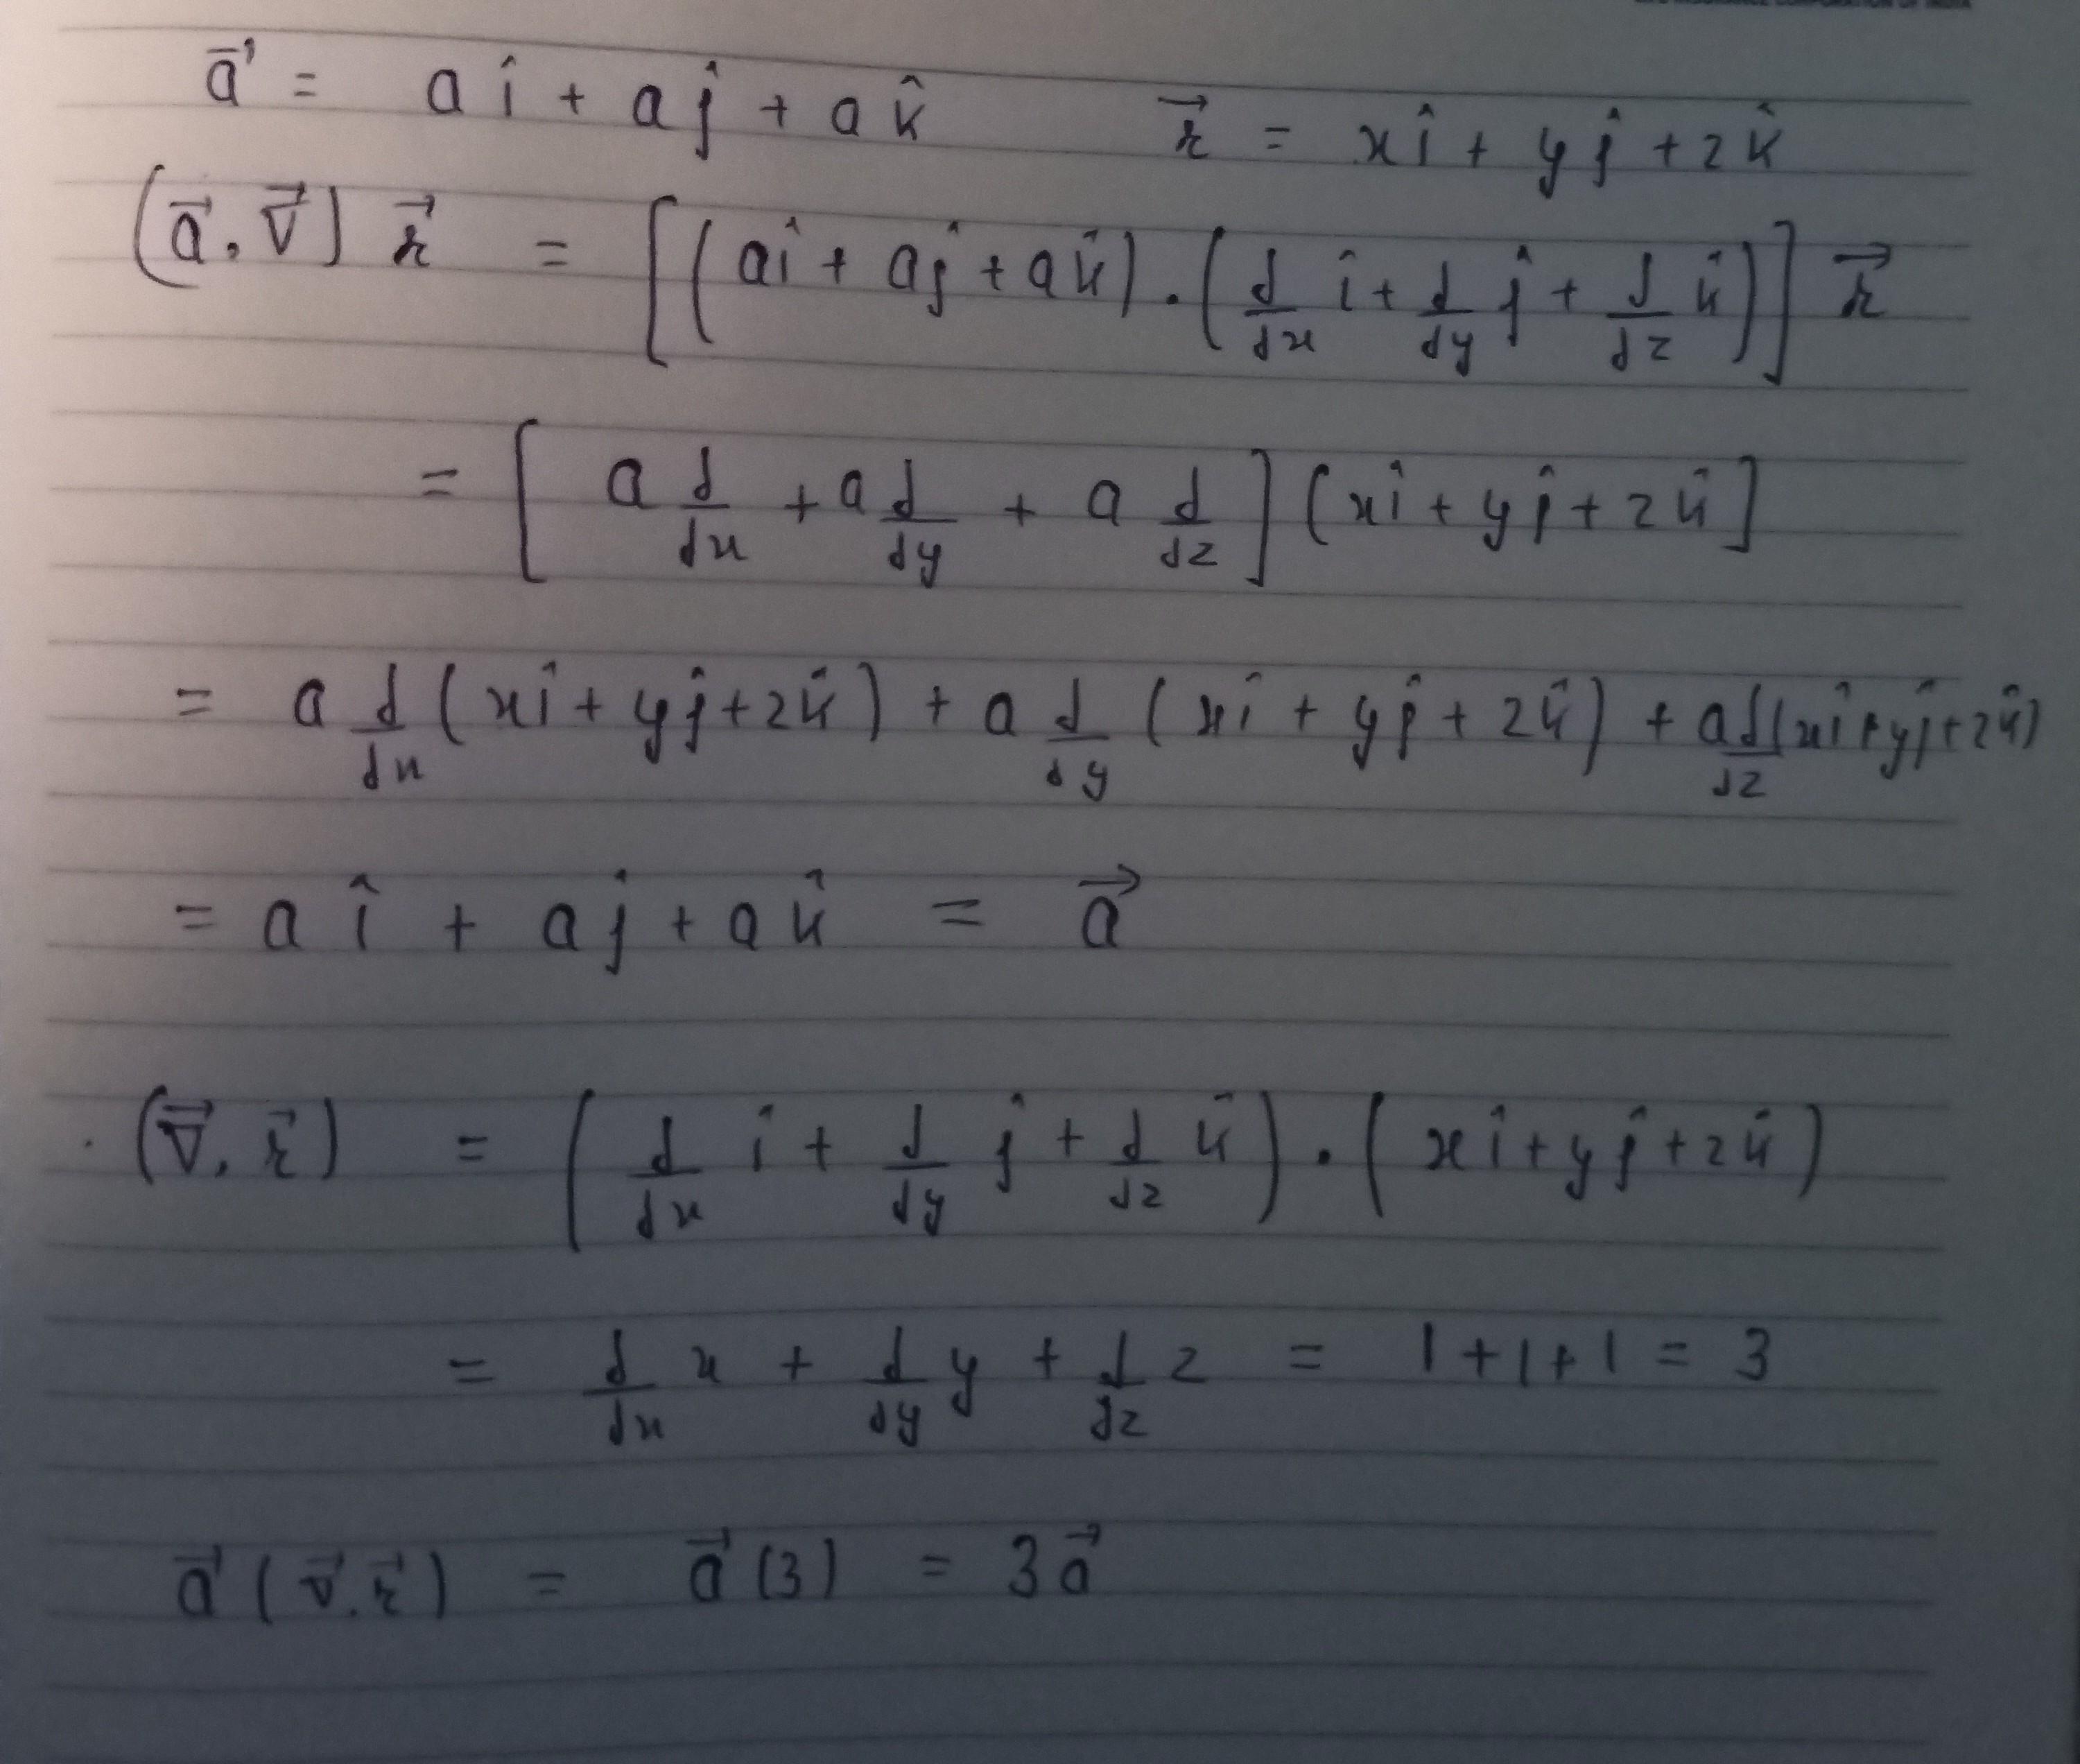 a⃗ = a î + a ĵ + a k̂    r⃗ = x î + y ĵ + z k̂
(a⃗ . ∇⃗) r⃗ = [(a î + a ĵ + a k̂) . (d/dx î + d/dy ĵ + d/dz k̂)] r⃗
= [a d/dx + a d/dy + a d/dz] (x î + y ĵ + z k̂]
= a d/dx (x î + y ĵ + z k̂) + a d/dy (x î + y ĵ + z k̂) + a d/dz (x î + y ĵ + z k̂)
= a î + a ĵ + a k̂ = a⃗
. (∇⃗ . r⃗) = (d/dx î + d/dy ĵ + d/dz k̂) . (x î + y ĵ + z k̂)
= d/dx x + d/dy y + d/dz z = 1 + 1 + 1 = 3
a⃗ (∇⃗ . r⃗) = a⃗ (3) = 3 a⃗